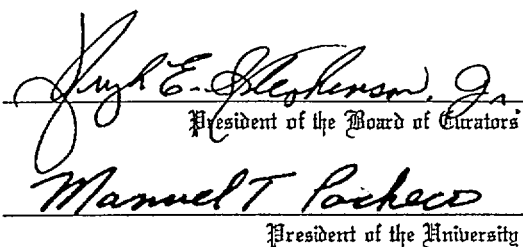 Hugh E. Stephenson, Jr.
President of the Board of Curators
Manuel T Pacheco
President of the University